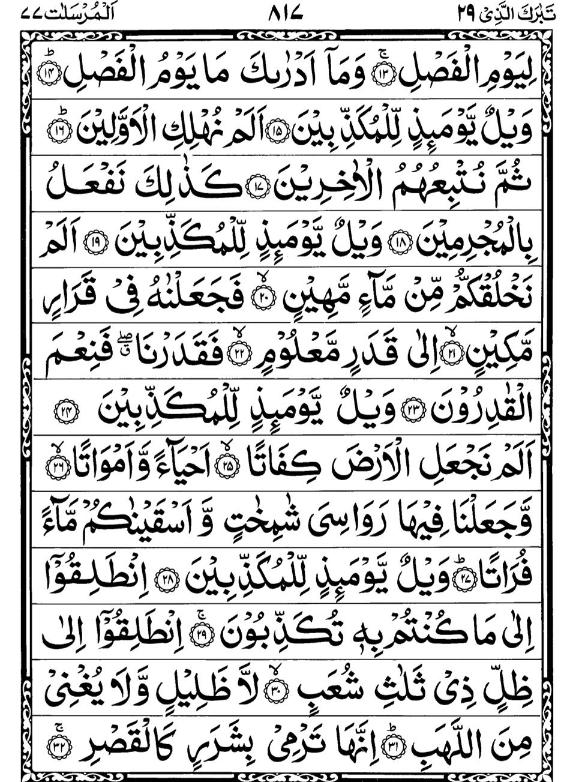 تَبٰرَكَ الَّذِیْ ٢٩ ٨١٧ اَلْمُرْسَلٰت ٧٧
لِیَوْمِ الْفَصْلِ ۚ﴿١٣﴾ وَمَاۤ اَدْرٰىكَ مَا یَوْمُ الْفَصْلِ ؕ﴿١٤﴾
وَیْلٌ یَّوْمَئِذٍ لِّلْمُكَذِّبِیْنَ ﴿١٥﴾ اَلَمْ نُهْلِكِ الْاَوَّلِیْنَ ؕ﴿١٦﴾
ثُمَّ نُتْبِعُهُمُ الْاٰخِرِیْنَ ﴿١٧﴾ كَذٰلِكَ نَفْعَلُ
بِالْمُجْرِمِیْنَ ﴿١٨﴾ وَیْلٌ یَّوْمَئِذٍ لِّلْمُكَذِّبِیْنَ ﴿١٩﴾ اَلَمْ
نَخْلُقْكُّمْ مِّنْ مَّآءٍ مَّهِیْنٍ ۙ﴿٢٠﴾ فَجَعَلْنٰهُ فِیْ قَرَارٍ
مَّكِیْنٍ ۙ﴿٢١﴾ اِلٰى قَدَرٍ مَّعْلُوْمٍ ۙ﴿٢٢﴾ فَقَدَرْنَا ۖۗ فَنِعْمَ
الْقٰدِرُوْنَ ﴿٢٣﴾ وَیْلٌ یَّوْمَئِذٍ لِّلْمُكَذِّبِیْنَ ﴿٢٤﴾
اَلَمْ نَجْعَلِ الْاَرْضَ كِفَاتًا ۙ﴿٢٥﴾ اَحْیَآءً وَّاَمْوَاتًا ۙ﴿٢٦﴾
وَّجَعَلْنَا فِیْهَا رَوَاسِیَ شٰمِخٰتٍ وَّ اَسْقَیْنٰكُمْ مَّآءً
فُرَاتًا ؕ﴿٢٧﴾ وَیْلٌ یَّوْمَئِذٍ لِّلْمُكَذِّبِیْنَ ﴿٢٨﴾ اِنْطَلِقُوْۤا
اِلٰى مَا كُنْتُمْ بِهٖ تُكَذِّبُوْنَ ۚ﴿٢٩﴾ اِنْطَلِقُوْۤا اِلٰى
ظِلٍّ ذِیْ ثَلٰثِ شُعَبٍ ۙ﴿٣٠﴾ لَّا ظَلِیْلٍ وَّلَا یُغْنِیْ
مِنَ اللَّهَبِ ؕ﴿٣١﴾ اِنَّهَا تَرْمِیْ بِشَرَرٍ كَالْقَصْرِ ۚ﴿٣٢﴾